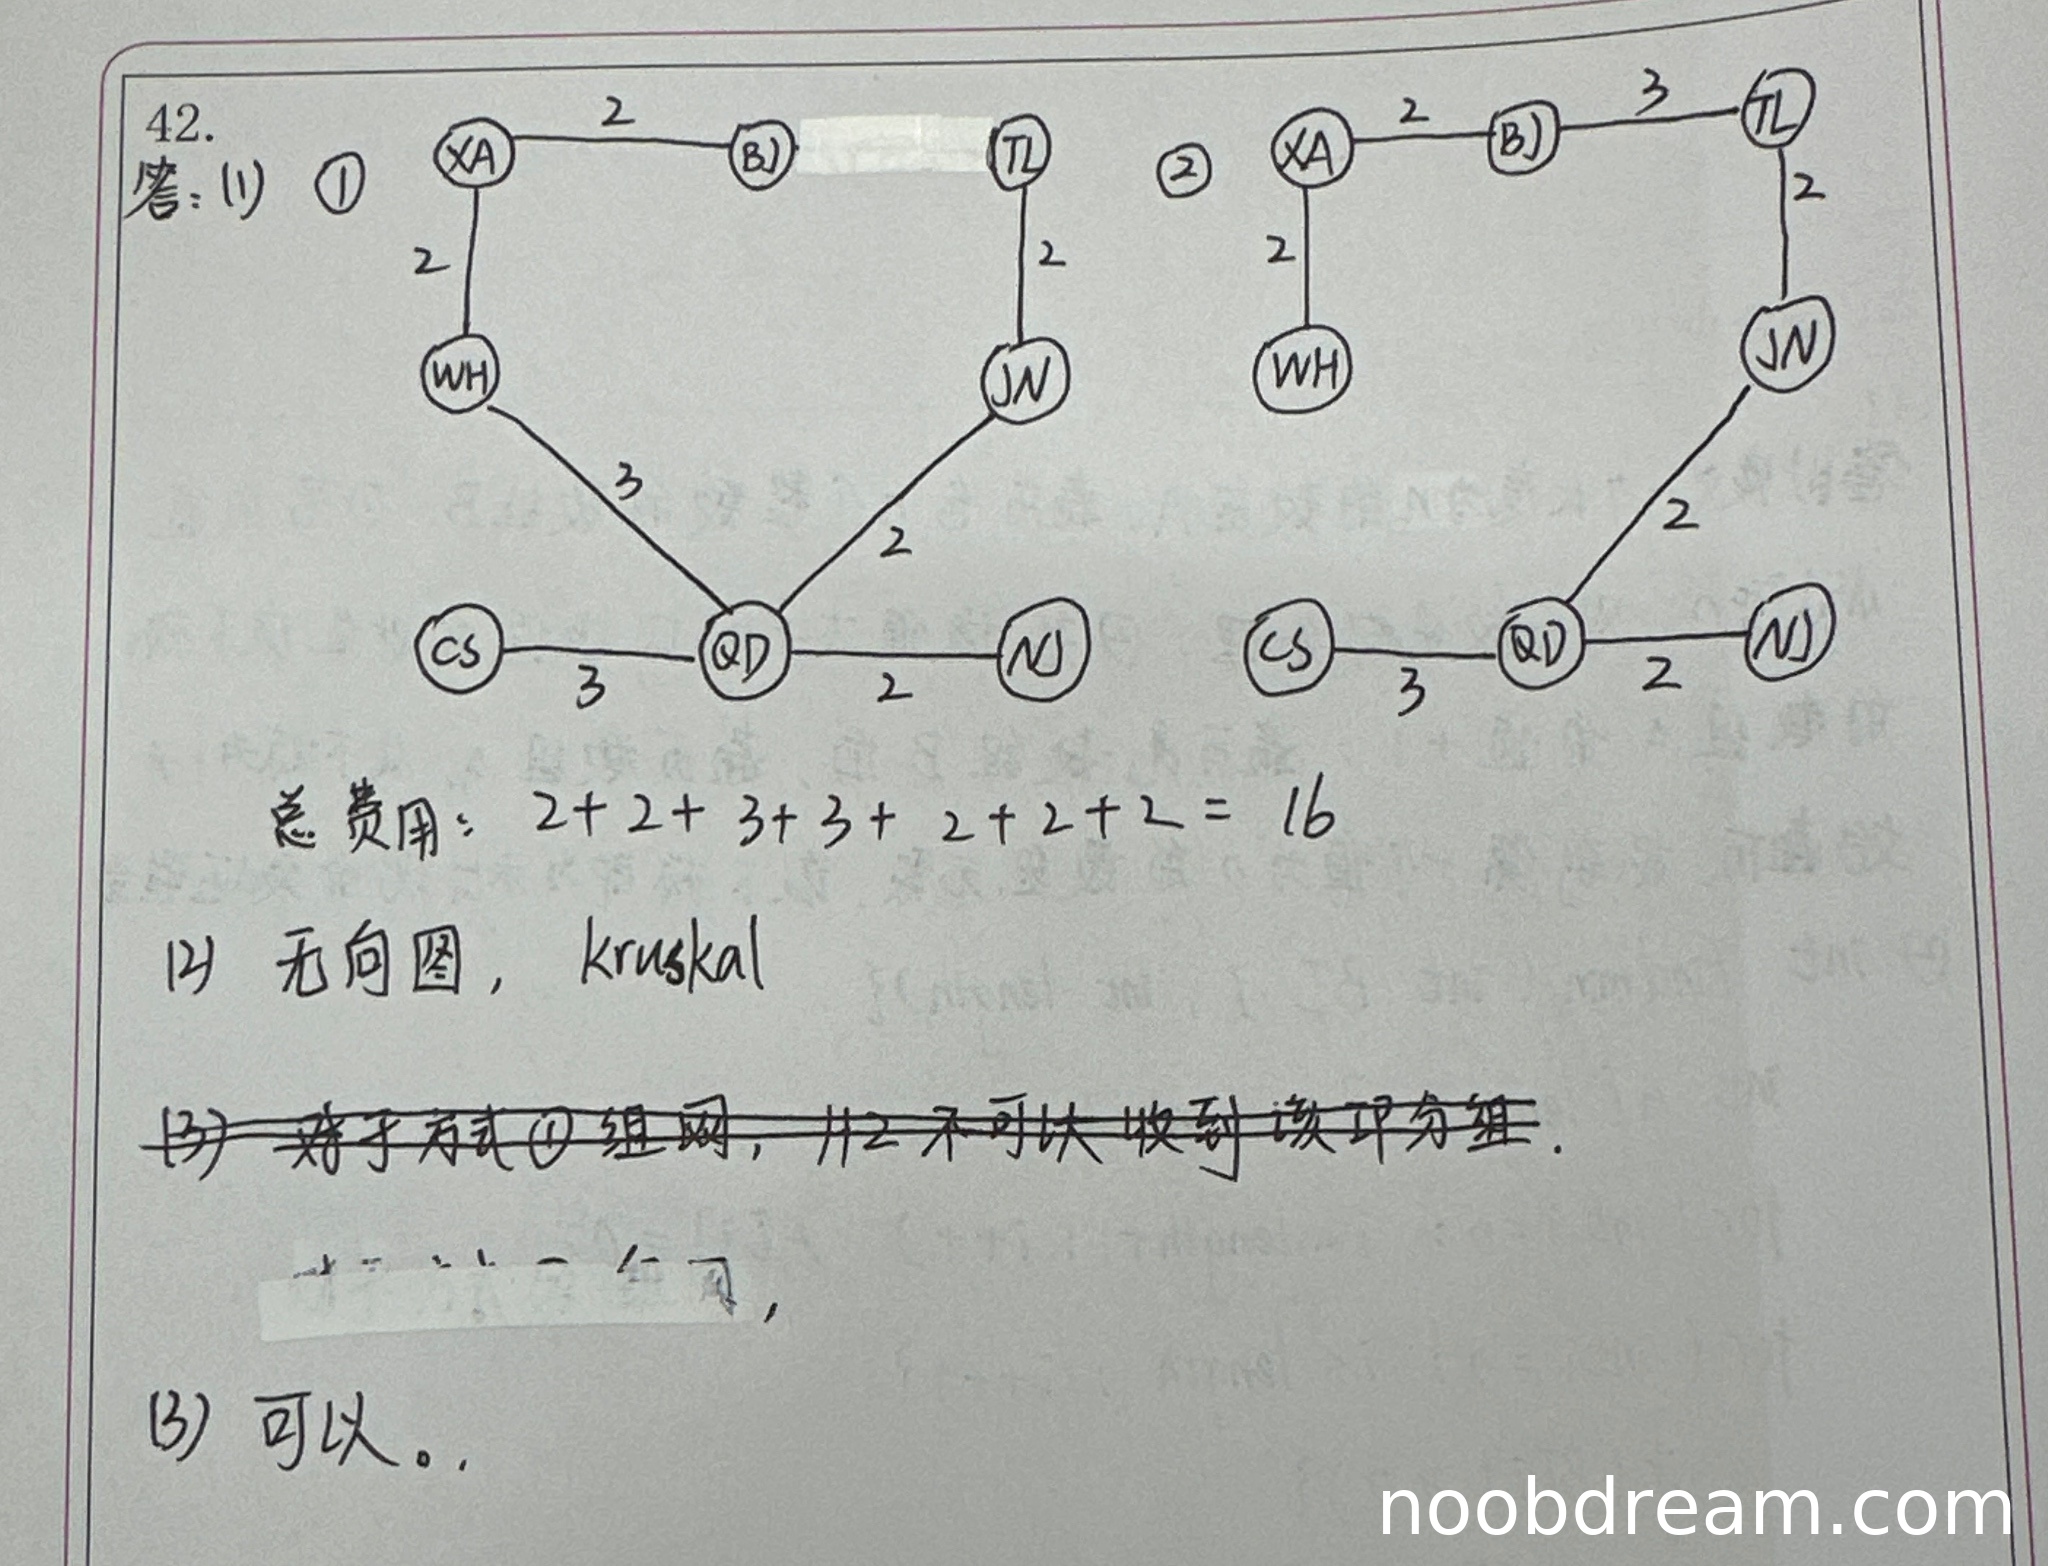 42.
答: (1) ① XA 2 BJ TL ② XA 2 BJ 3 TL
2 2 2 2
WH JN WH JN
3 2 2
CS 3 QD 2 NJ CS 3 QD 2 NJ
总费用: 2+2+3+3+2+2+2= 16
(2) 无向图, kruskal
(3) 对于方式①组网, H2不可以收到该IP分组.
(3) 可以。.
noobdream.com